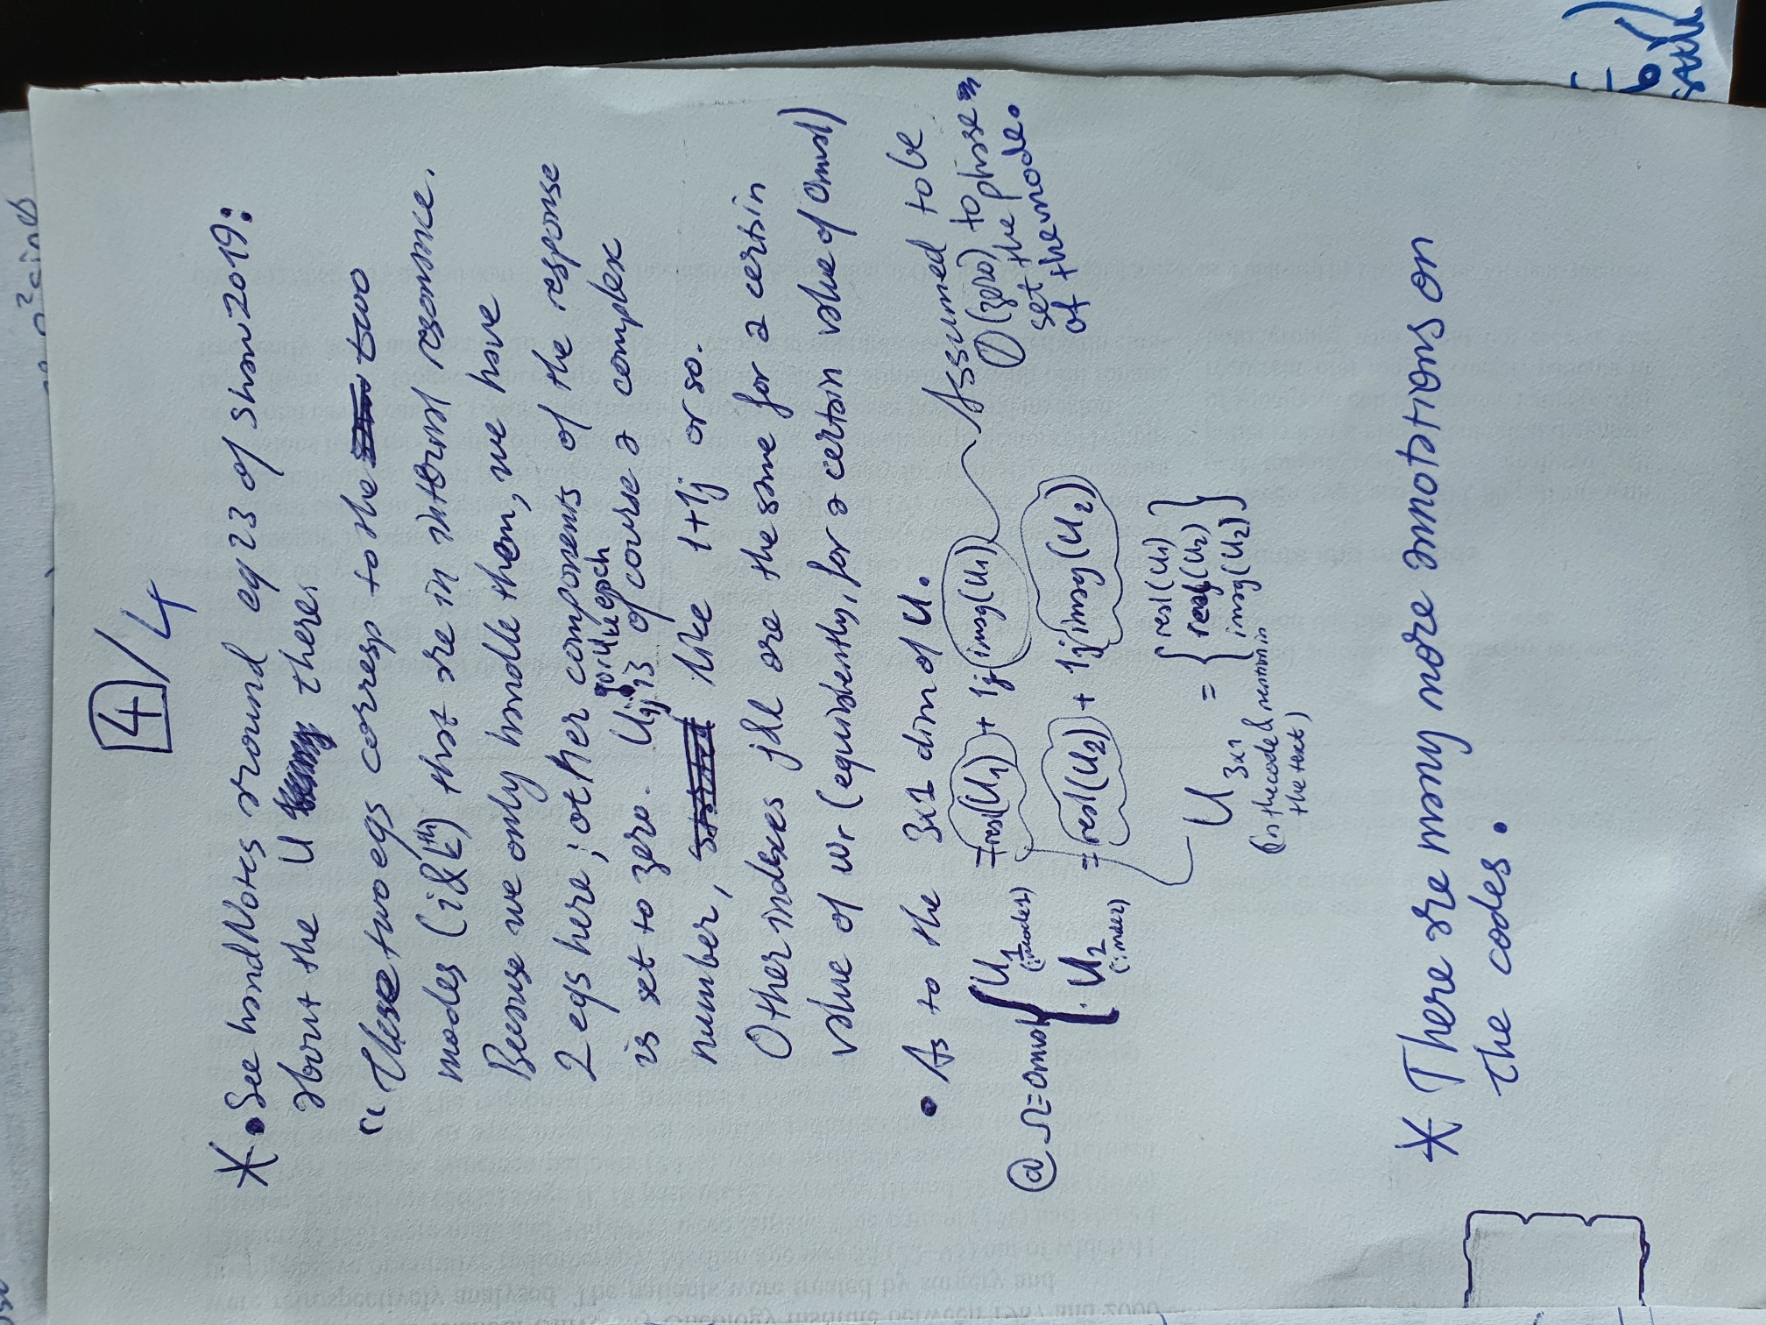 4/4
* • See handNotes around eq23 of Shaw2019:
about the U there.
"These two eqs corresp to the two
modes (i&kth) that are in internal resonance.
Because we only handle them, we have
2 eqs here; other components of the response
is set to zero. Uij is of course a complex
number, like 1+1j or so.
Other indexes j&l are the same for a certain
value of wr (equivalently, for a certain value of Omval)
• As to the 3x1 dim of U.
@ Ω=Omval { U1 (:mode1) = real(U1) + 1j imag(U1)
Assumed to be
0 (zero) to
set the phase
of the mode.
U2 (:mode2) = real(U2) + 1j imag(U2)
U 3x1 = { real(U1)
real(U2)
imag(U2) }
(in the code & mention in
the text)
* There are many more annotations on
the codes.